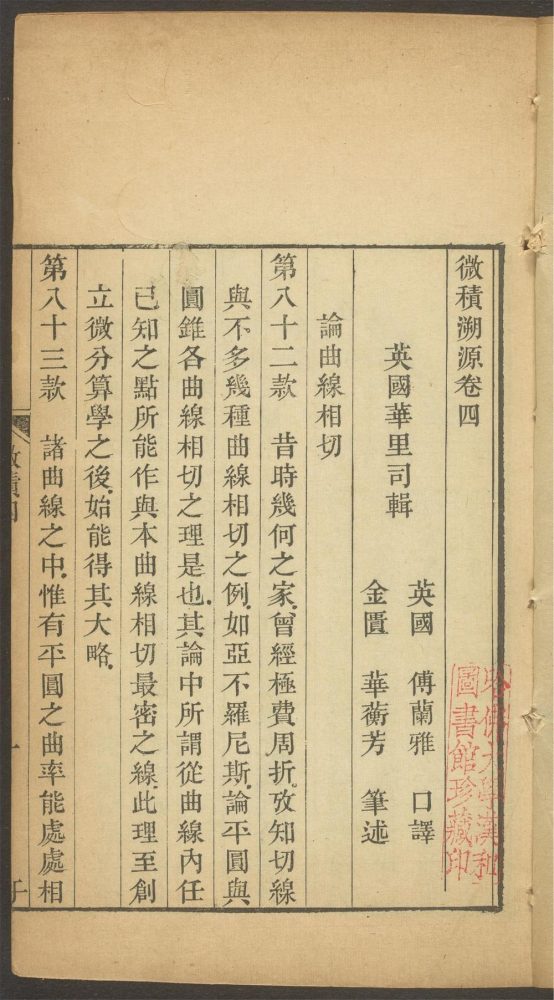 微積溯源卷四
英國華里司輯
英國　傅蘭雅　口譯
金匱　華蘅芳　筆述
論曲線相切
第八十二款　昔時幾何之家曾經極費周折攷知切線
與不多幾種曲線相切之例如亞不羅尼斯論平圓與
圓錐各曲線相切之理是也其論中所謂從曲線內任
已知之點所能作與本曲線相切最密之線此理至創
立微分算學之後始能得其大略
第八十三款　諸曲線之中惟有平圓之曲率能處處相
哈佛大學漢和
圖書館珍藏印